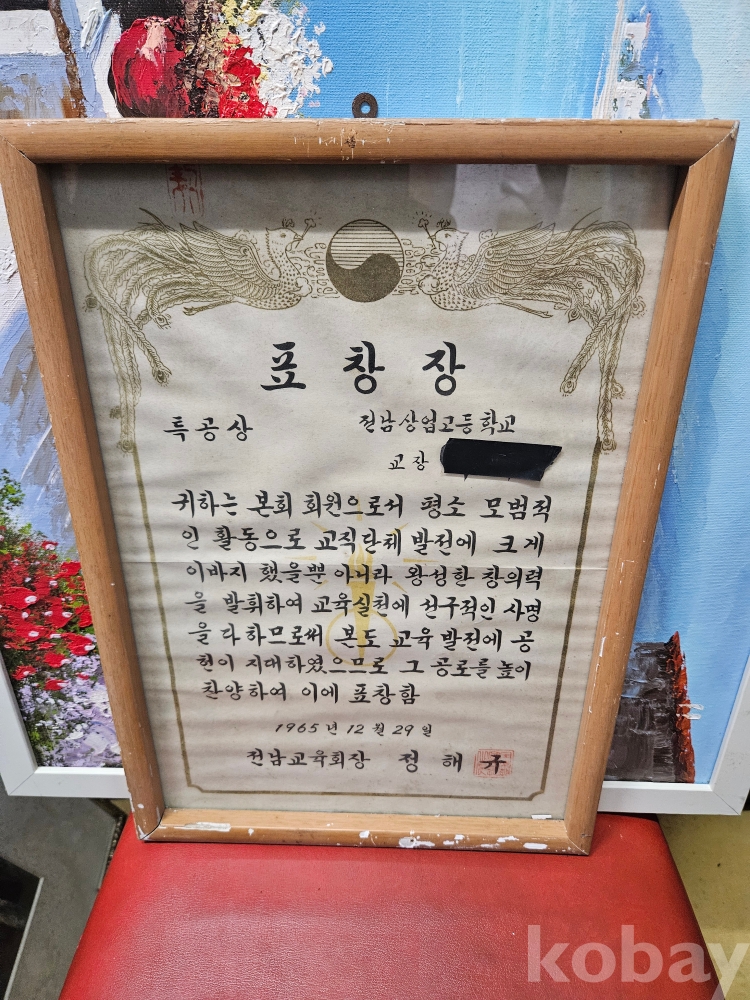 표창장
특공상
전남상업고등학교
교장
귀하는 본회 회원으로서 평소 모범적
인 활동으로 교직단체 발전에 크게
이바지 했을뿐 아니라 왕성한 창의력
을 발휘하여 교육실천에 선구적인 사명
을 다하므로써 본도 교육 발전에 공
헌이 지대하였으므로 그 공로를 높이
찬양하여 이에 표창함
1965년 12월 29일
전남교육회장 정해규
kobay